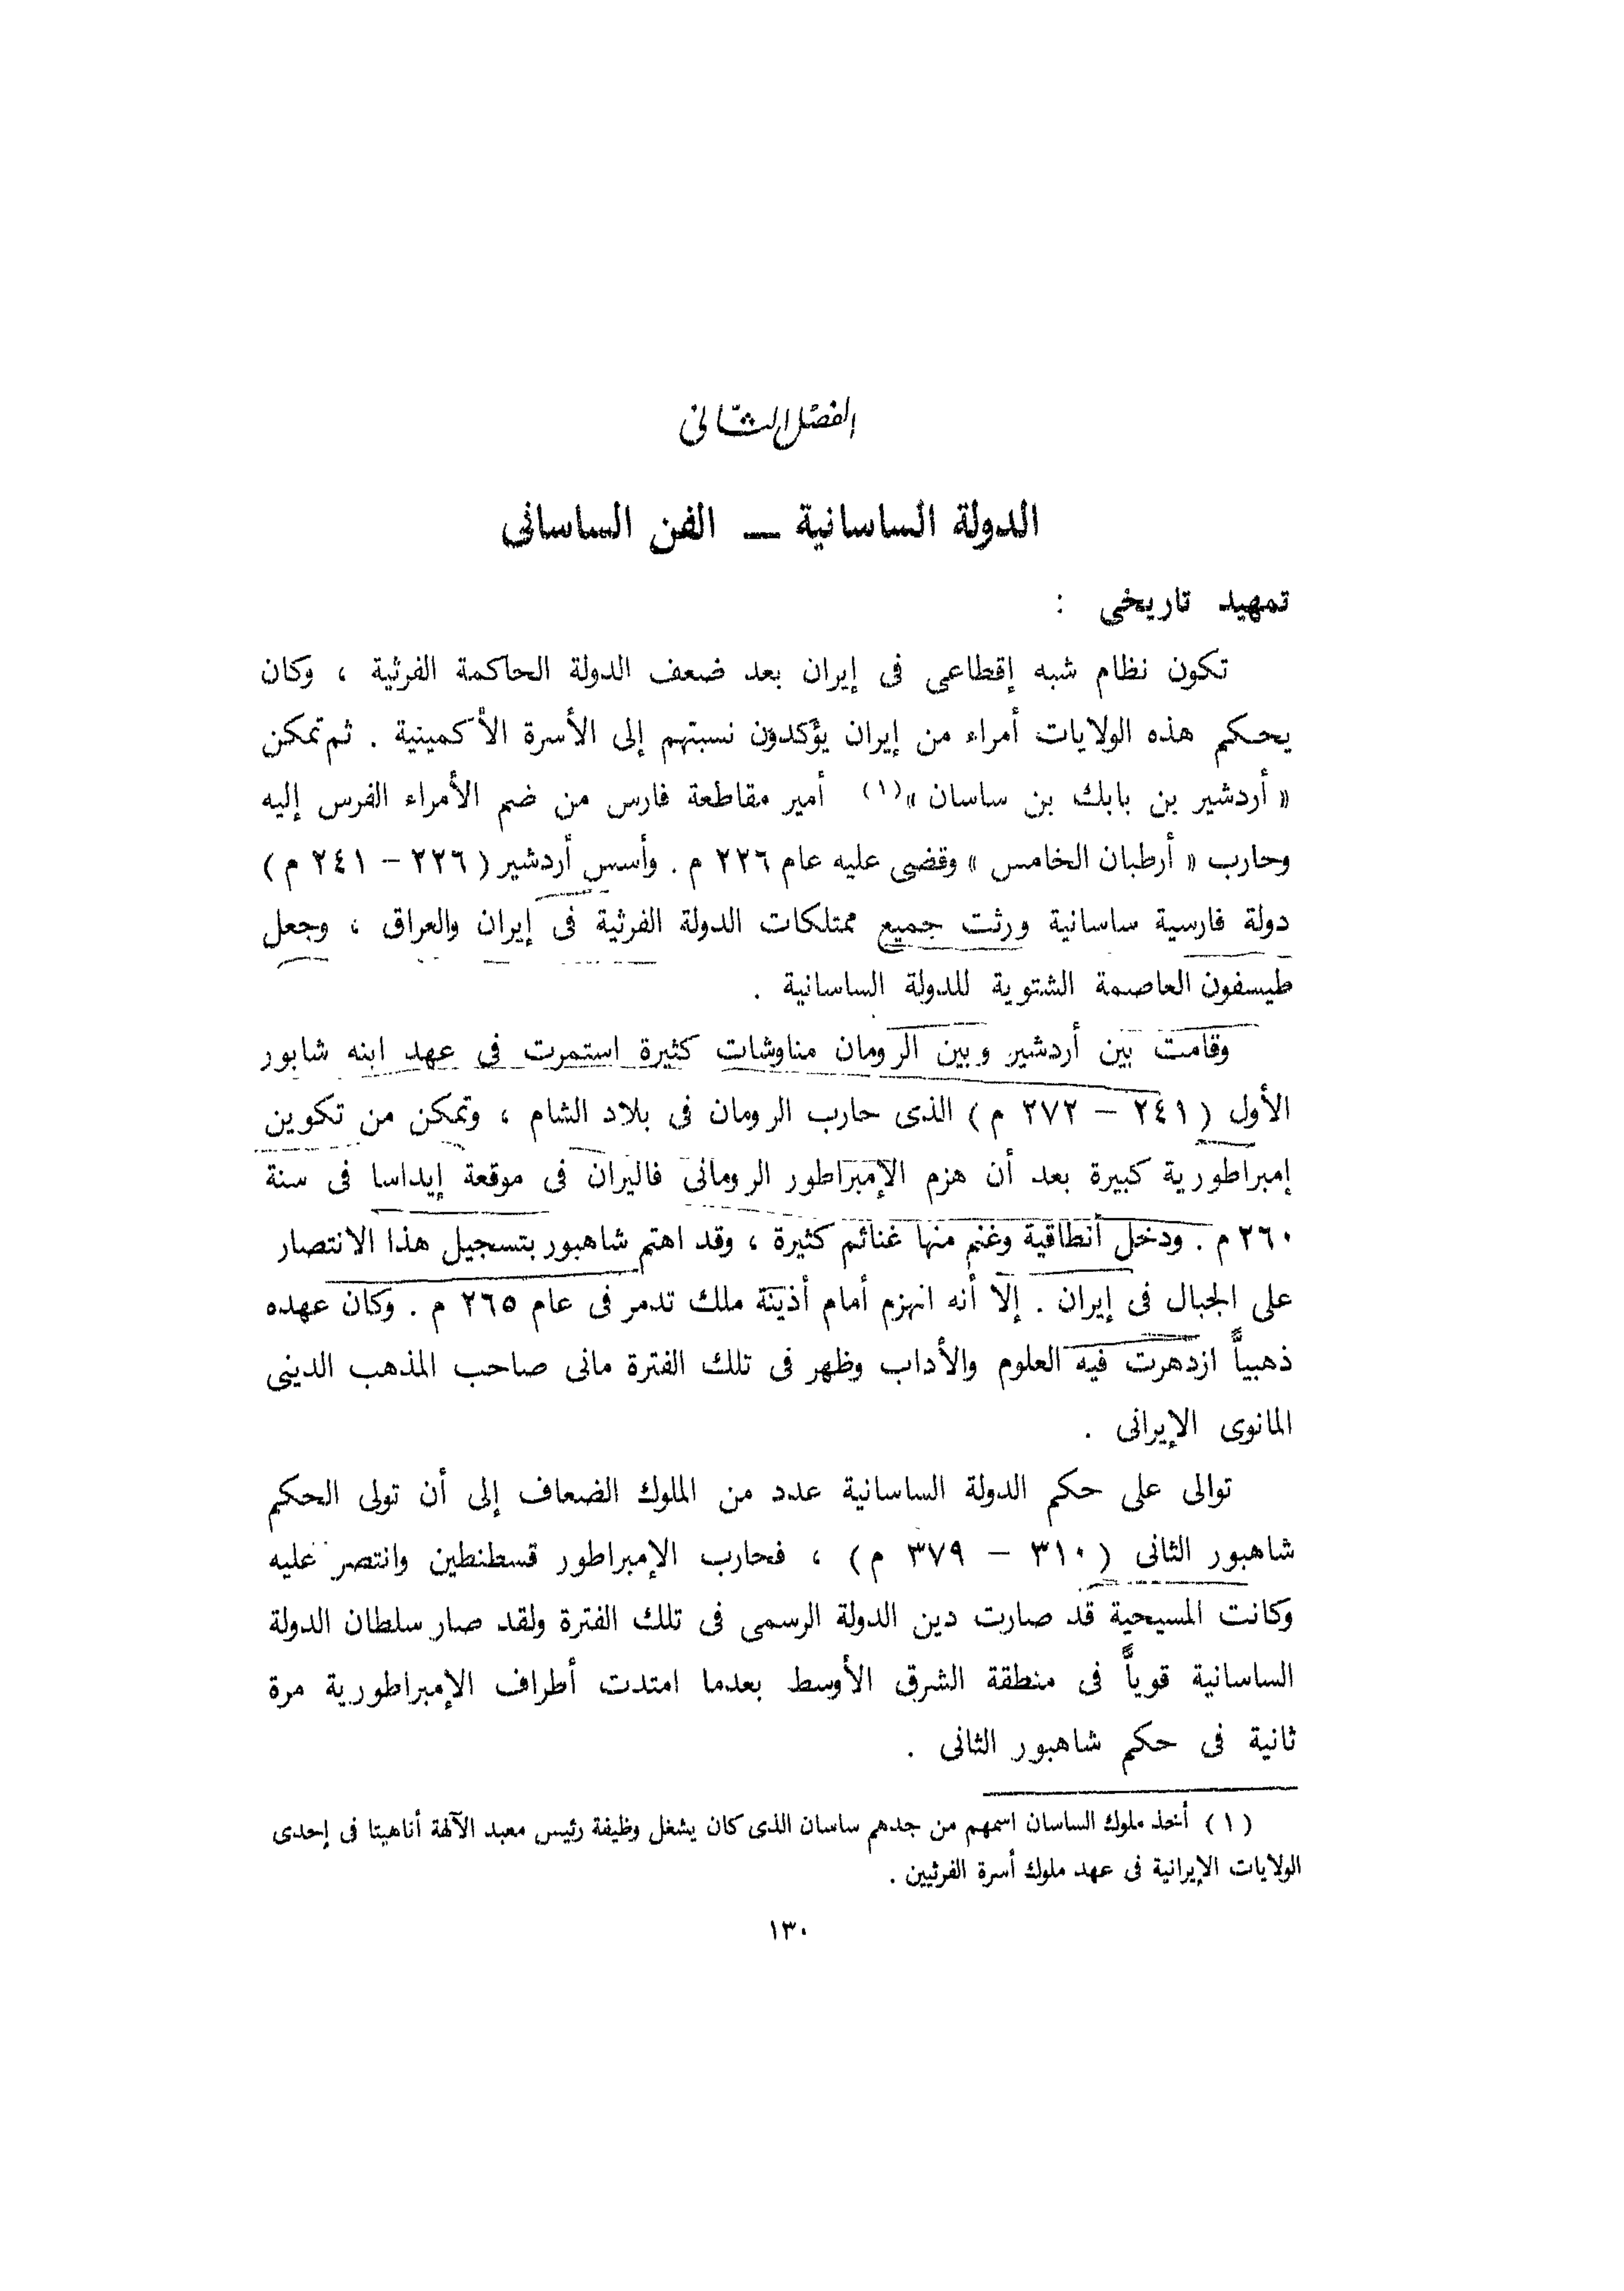 الفصل الثانى
الدولة الساسانية – الفن الساسانى
تمهيد تاريخى :
تكون نظام شبه إقطاعى فى إيران بعد ضعف الدولة الحاكمة الفرثية ، وكان
يحكم هذه الولايات أمراء من إيران يؤكدون نسبتهم إلى الأسرة الأكمينية . ثم تمكن
« أردشير بن بابك بن ساسان »(١) أمير مقاطعة فارس من ضم الأمراء الفرس إليه
وحارب « أرطبان الخامس » وقضى عليه عام ٢٢٦ م . وأسس أردشير ( ٢٢٦ – ٢٤١ م )
دولة فارسية ساسانية ورثت جميع ممتلكات الدولة الفرثية فى إيران والعراق ، وجعل
طيسفون العاصمة الشتوية للدولة الساسانية .
وقامت بين أردشير وبين الرومان مناوشات كثيرة استمرت فى عهد ابنه شابور
الأول ( ٢٤١ – ٢٧٢ م ) الذى حارب الرومان فى بلاد الشام ، وتمكن من تكوين
إمبراطورية كبيرة بعد أن هزم الإمبراطور الرومانى فاليران فى موقعة إيداسا فى سنة
٢٦٠ م . ودخل أنطاقية وغنم منها غنائم كثيرة ، وقد اهتم شاهبور بتسجيل هذا الانتصار
على الجبال فى إيران . إلا أنه انهزم أمام أذينة ملك تدمر فى عام ٢٦٥ م . وكان عهده
ذهبياً ازدهرت فيه العلوم والأداب وظهر فى تلك الفترة مانى صاحب المذهب الدينى
المانوى الإيرانى .
توالى على حكم الدولة الساسانية عدد من الملوك الضعاف إلى أن تولى الحكم
شاهبور الثانى ( ٣١٠ – ٣٧٩ م ) ، فحارب الإمبراطور قسطنطين وانتصر عليه
وكانت المسيحية قد صارت دين الدولة الرسمى فى تلك الفترة ولقد صار سلطان الدولة
الساسانية قوياً فى منطقة الشرق الأوسط بعدما امتدت أطراف الإمبراطورية مرة
ثانية فى حكم شاهبور الثانى .
( ١ ) أخذ ملوك الساسان اسمهم من جدهم ساسان الذى كان يشغل وظيفة رئيس معبد الآلهة أناهيتا فى إحدى
الولايات الإيرانية فى عهد ملوك أسرة الفرثيين .
١٣٠